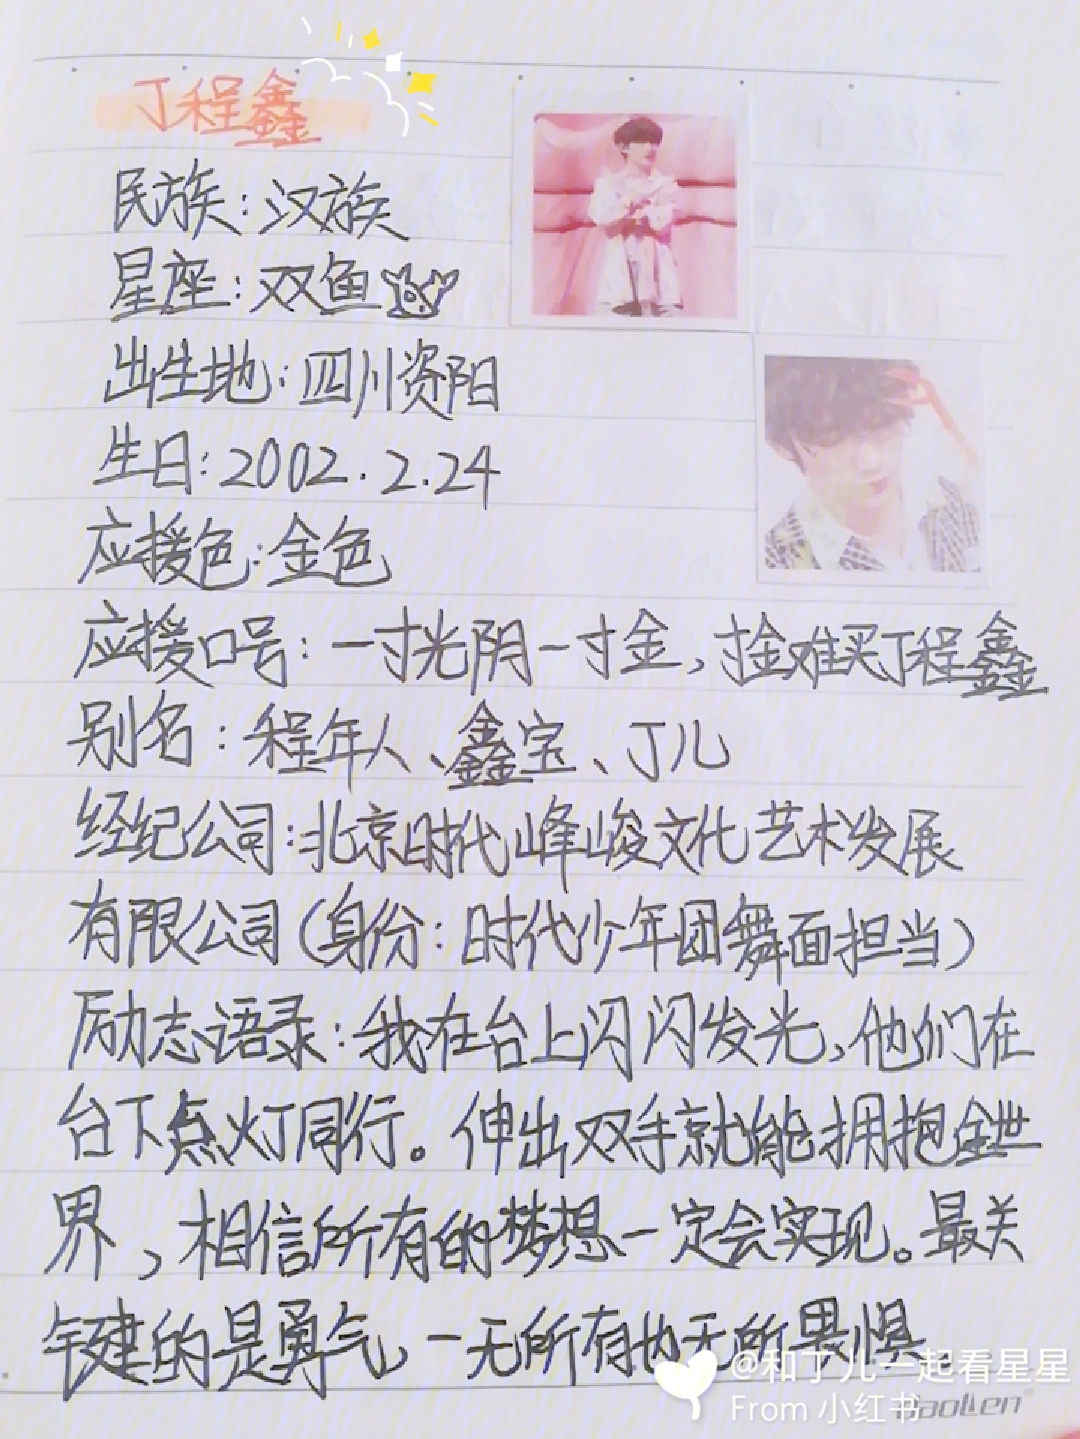 丁程鑫
民族：汉族
星座：双鱼
出生地：四川资阳
生日：2002.2.24
应援色：金色
应援口号：一寸光阴一寸金，寸金难买丁程鑫
别名：程年人、鑫宝、丁儿
经纪公司：北京时代峰峻文化艺术发展
有限公司（身份：时代少年团舞面担当）
励志语录：我在台上闪闪发光，他们在
台下点灯同行。伸出双手就能拥抱全世
界，相信所有的梦想一定会实现。最关
键的是勇气，一无所有也无所畏惧
@和丁儿一起看星星
From 小红书